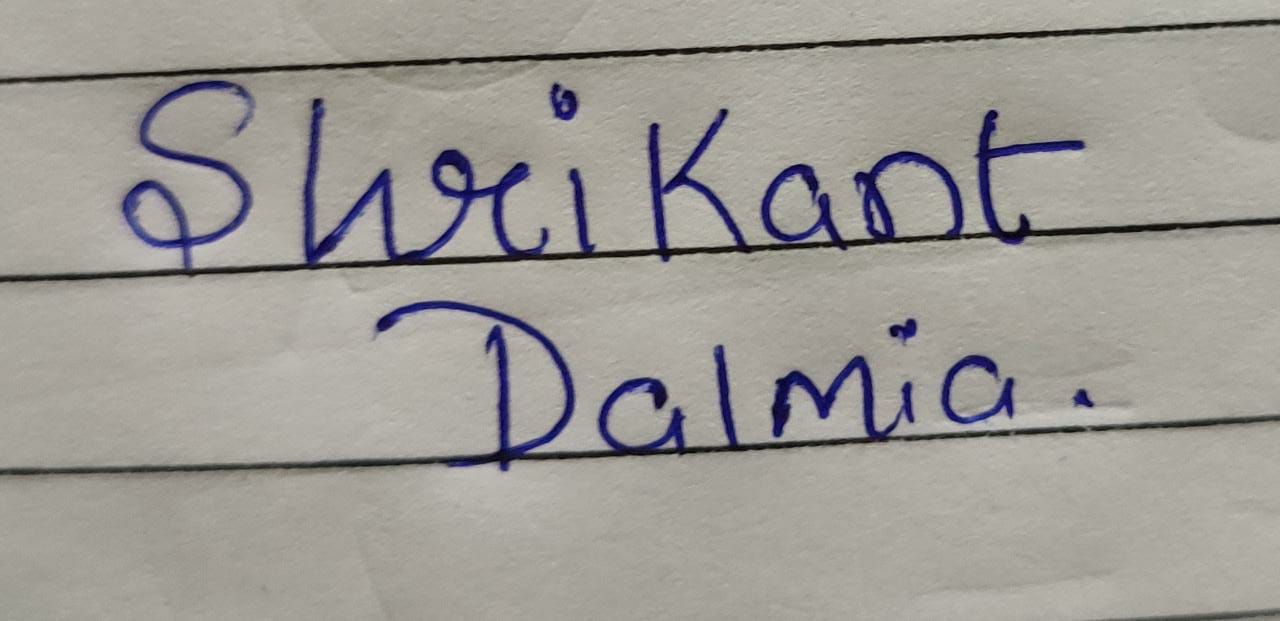 Shrikant
Dalmia.